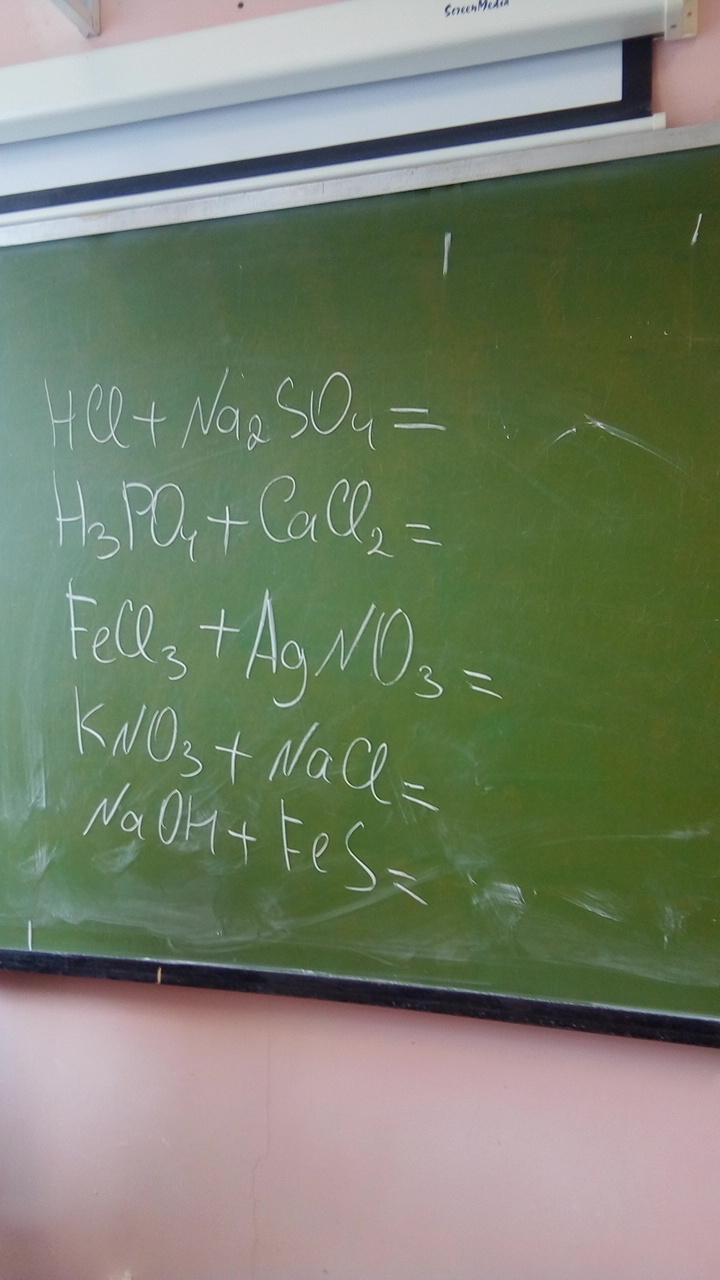 ScreenMedia
HCl + Na₂SO₄ =
H₃PO₄ + CaCl₂ =
FeCl₃ + AgNO₃ =
KNO₃ + NaCl =
NaOH + FeS =